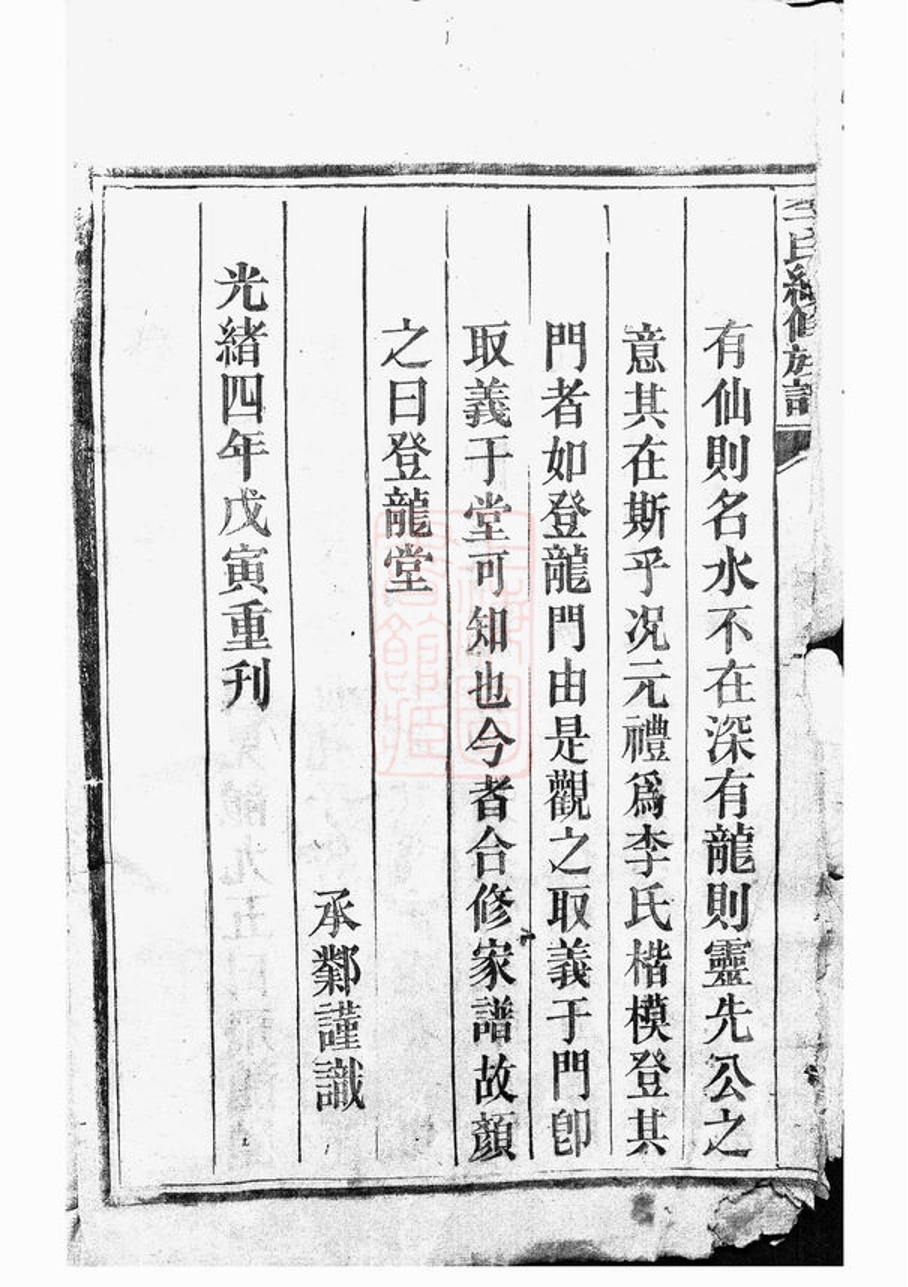 李氏續修族譜
有仙則名水不在深有龍則靈先公之
意其在斯乎况元禮爲李氏楷模登其
門者如登龍門由是觀之取義于門卽
取義于堂可知也今者合修家譜故顏
之曰登龍堂
承鄴謹識
光緒四年戊寅重刊